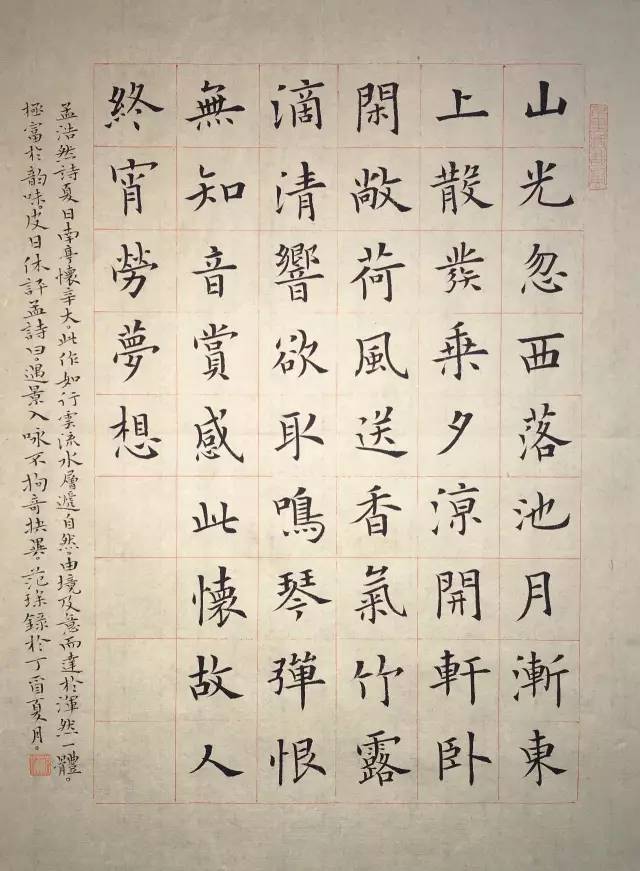 山光忽西落池月漸東
上散發乘夕涼開軒卧
閑敞荷風送香氣竹露
滴清響欲取鳴琴彈恨
無知音賞感此懷故人
終宵勞夢想
孟浩然詩夏日南亭懷辛大。此作如行雲流水層遞自然由境及意而達於渾然一體。
極富於韵味。皮日休評孟詩曰。遇景入咏不拘奇抉異。范錄於丁酉夏月。